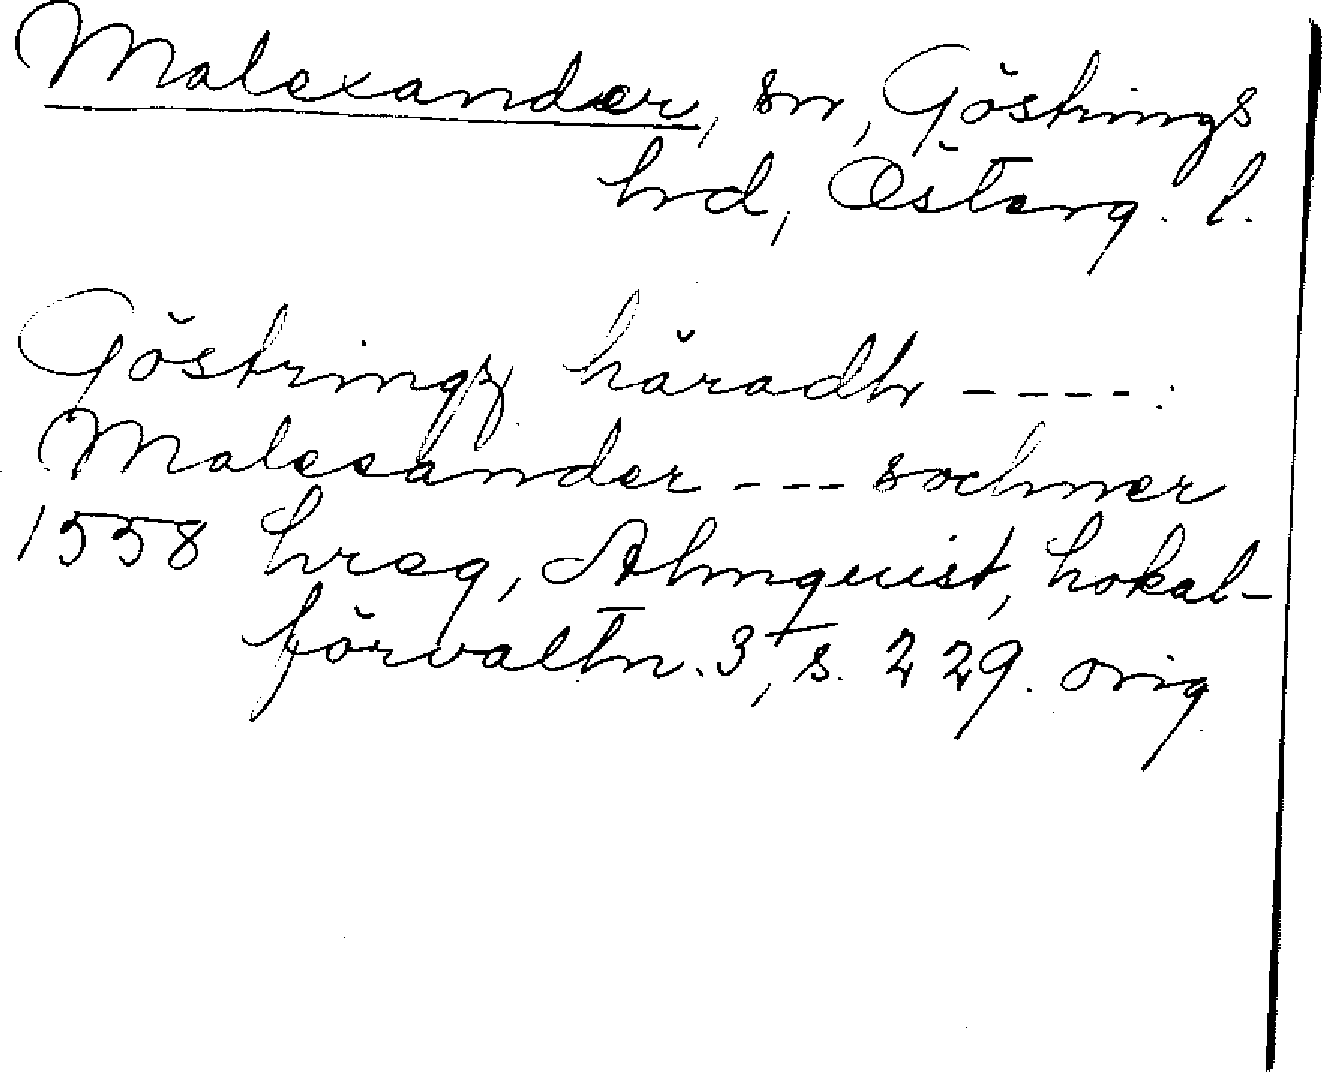 Malexander, sn, Göstrings
hd, Österg. l.
Göstringz häradh ----:
Malexander --- sochner
1558 hreg, Almquist, Lokal-
förvaltn. 3, s. 229. orig